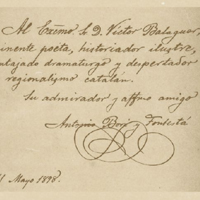 Al Excmo Sr D. Victor Balaguer,
inente poeta, historiador ilustre,
ntajado dramaturgo y despertador
regionalismo catalán.
Su admirador y affmo amigo
Antonio Bori y Fontestá
Mayo 1898.